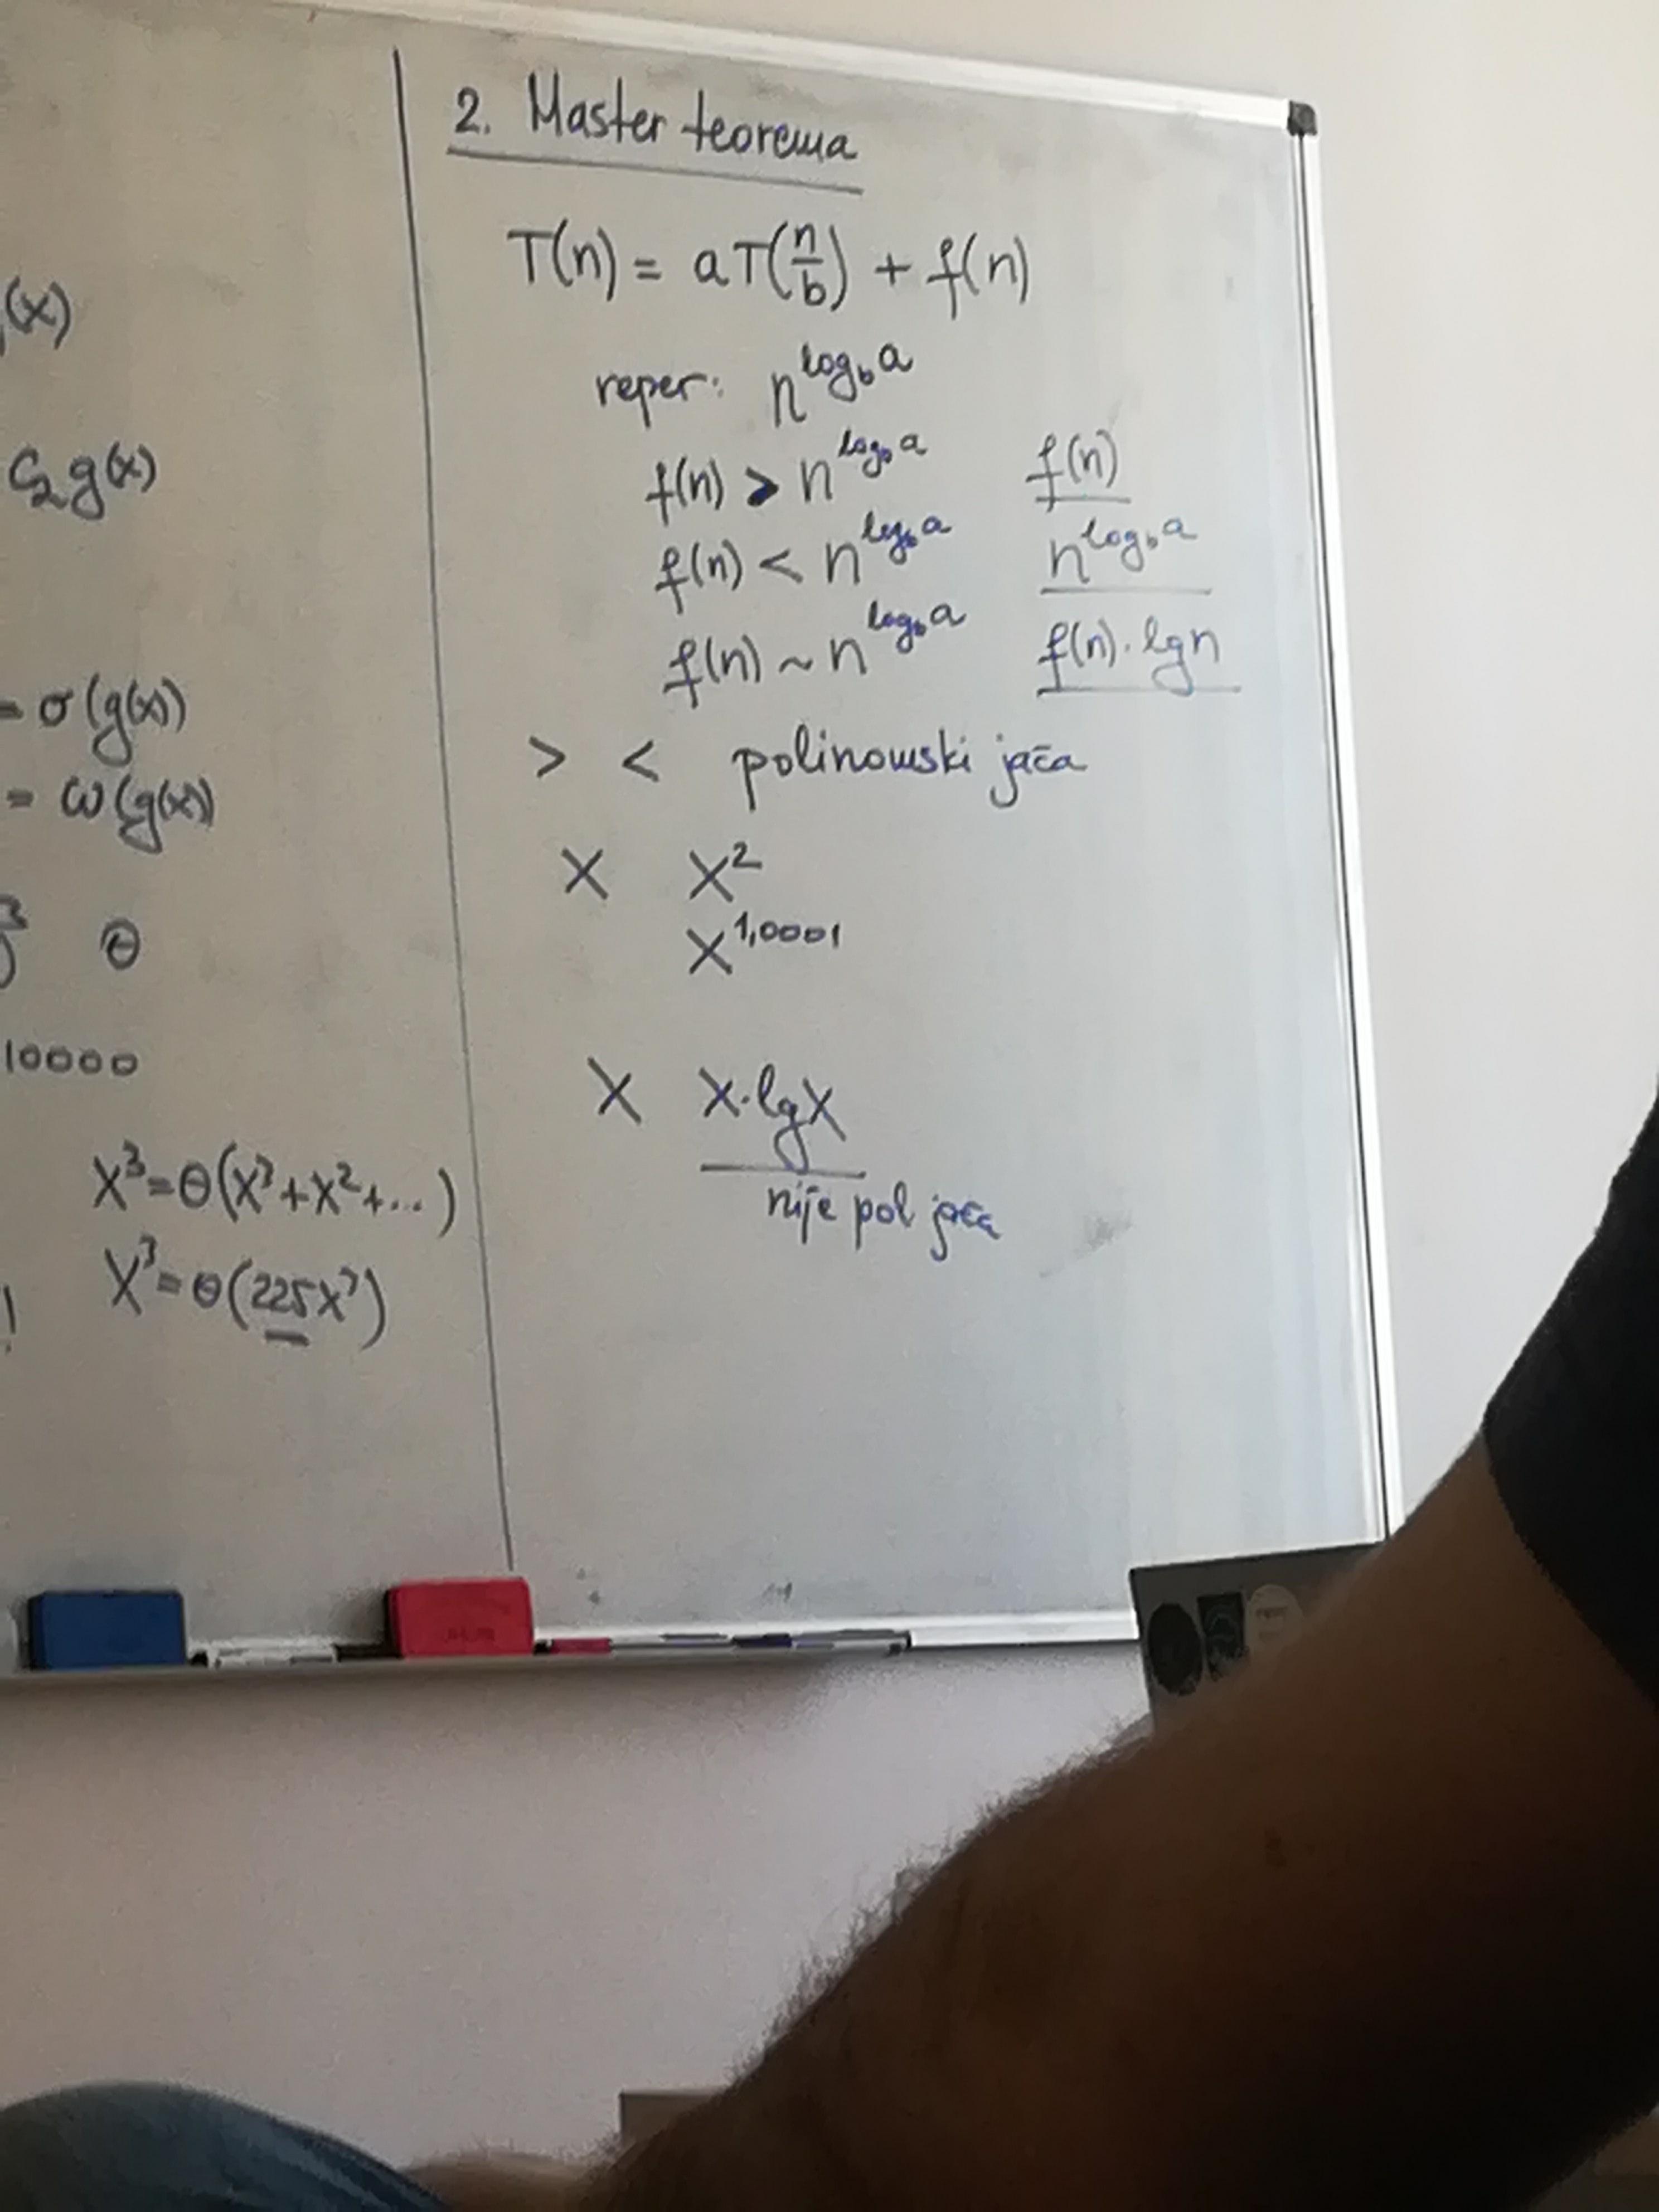 (x)
C₂g(x)
= σ(g(x))
= ω(g(x))
3 Θ
10000
X³=Θ(X³+X²+...)
X³=Θ(225X³)
!
2. Master teorema
T(n) = aT(n/b) + f(n)
reper: n^log_b a
f(n) > n^log_b a f(n)
f(n) < n^log_b a n^log_b a
f(n) ~ n^log_b a f(n)·lgn
> < polinomski jača
X X²
X^1,0001
X X·lgX
nije pol jača